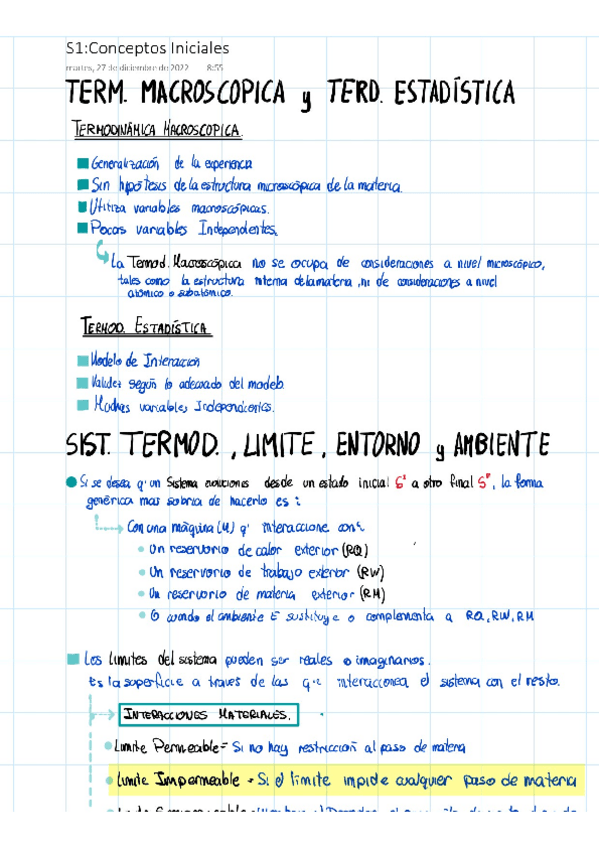 S1:Conceptos Iniciales
martes, 27 de diciembre de 2022 8:55
TERM. MACROSCOPICA y TERD. ESTADÍSTICA
TERMODINÁMICA MACROSCOPICA.
Generalización de la experiencia
Sin hipótesis de la estructura microscópica de la materia.
Utiliza variables macroscópicas.
Pocas variables Independientes.
La Termod. Macroscópica no se ocupa de consideraciones a nivel microscópico,
tales como la estructura interna de la materia, ni de consideraciones a nivel
atómico o subatómico.
TERMOD. ESTADÍSTICA
Modelo de Interacción
Validez según lo adecuado del modelo
Muchas variables Independientes.
SIST. TERMOD., LIMITE, ENTORNO y AMBIENTE
Si se desea q' un Sistema evoluciones desde un estado inicial a otro final, la forma
genérica mas sobria de hacerlo es:
Con una máquina (M) q' interaccione con:
Un reservorio de calor exterior (RQ)
Un reservorio de trabajo exterior (RW)
Un reservorio de materia exterior (RM)
O cuando el ambiente E sustituye o complementa a RQ, RW, RM
Los limites del sistema pueden ser reales o imaginarios.
Es la superficie a través de las q' interacciona el sistema con el resto.
INTERACCIONES MATERIALES.
Limite Permeable = Si no hay restricción al paso de materia
Limite Impermeable = Si el límite impide cualquier paso de materia